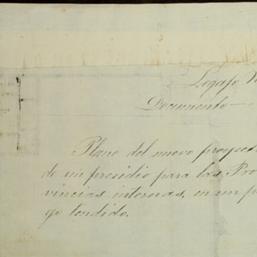 Legajo N
Documento
Plano del nuevo proyect
de un presidio para las Pro
vincias internas, en un p
go tendido.